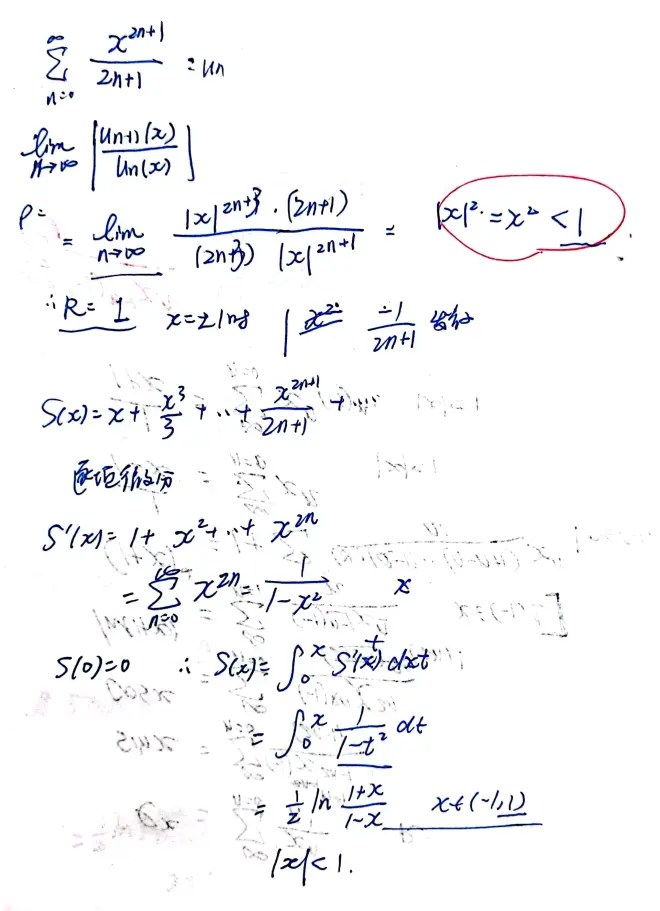 ∞∑n=0 x^{2n+1}/(2n+1) = un
lim n→∞ |u_{n+1}(x)/u_n(x)|
ρ=
= lim n→∞ |x|^{2n+3}·(2n+1)/((2n+3)|x|^{2n+1}) = |x|²=x²<1
∴R=1 x=±1时
S(x)=x+x³/3+…+x^{2n+1}/(2n+1)+…
逐项
S'(x)=1+x²+…+x^{2n}
=∞∑n=0 x^{2n}=1/(1-x²) x
S(0)=0 ∴ S(x)=∫₀ˣ S'(t)dt
=∫₀ˣ 1/(1-t²) dt
=1/2 ln (1+x)/(1-x) x∈(-1,1)
|x|<1.